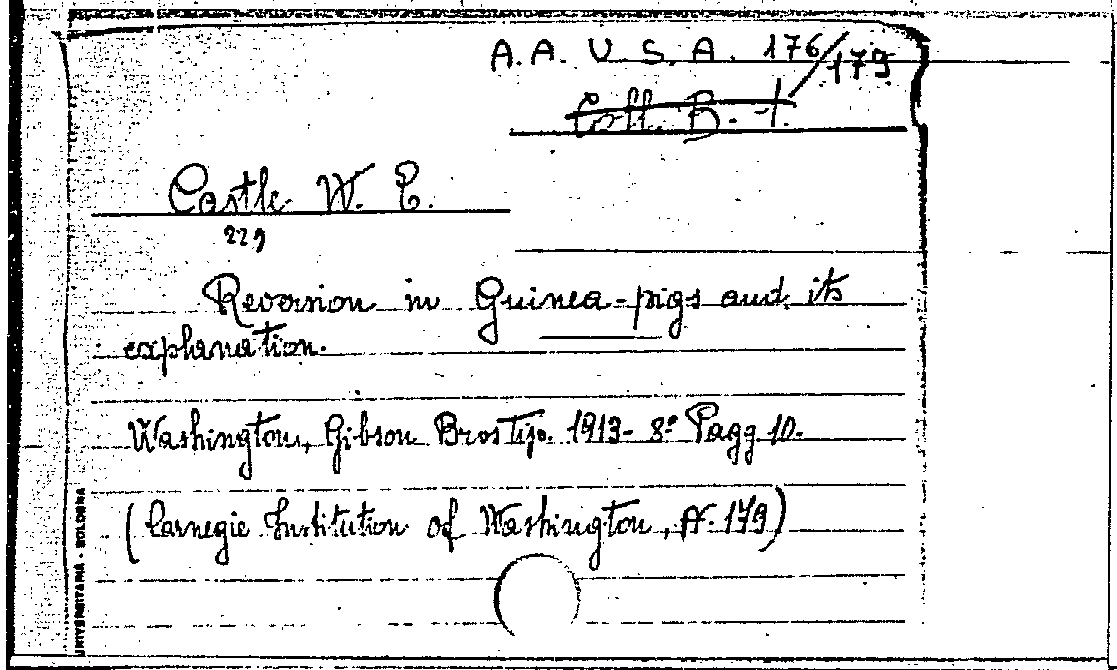 A. A. U. S. A. 176/179
Coll. B. 1.
Castle W. E.
229
Reversion in Guinea-pigs and its
explanation.
Washington, Gibson Bros Tip. 1913 - 8º Pagg 10.
(Carnegie Institution of Washington, N. 179)
UNIVERSITARIA - BOLOGNA